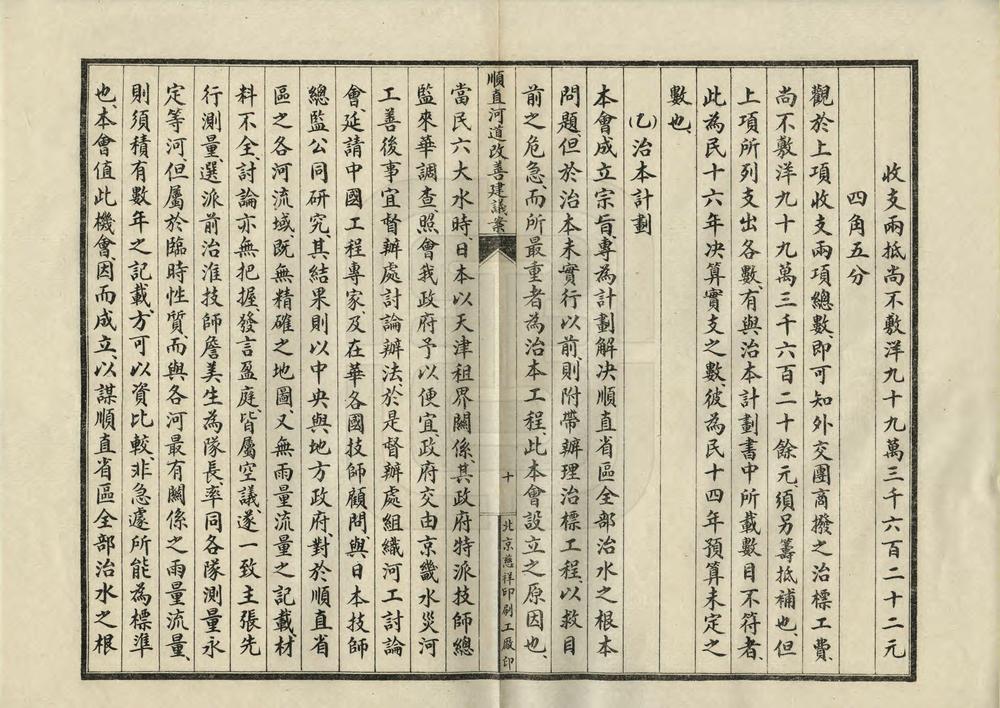 收支兩抵尚不敷洋九十九萬三千六百二十二元
四角五分
觀於上項收支兩項總數、即可知外交團商撥之治標工費、
尚不敷洋九十九萬三千六百二十餘元、須另籌抵補也、但
上項所列支出各數、有與治本計劃書中所載數目不符者、
此為民十六年決算實支之數、彼為民十四年預算未定之
數也、
(乙)治本計劃
本會成立宗旨、專為計劃解決順直省區全部治水之根本
問題、但於治本未實行以前、則附帶辦理治標工程、以救目
前之危急、而所最重者為治本工程、此本會設立之原因也、
順直河道改善建議案
十
北京慈祥印刷工廠印
當民六大水時、日本以天津租界關係、其政府特派技師總
監來華調查、照會我政府予以便宜、政府交由京畿水災河
工善後事宜督辦處討論辦法、於是督辦處組織河工討論
會、延請中國工程專家、及在華各國技師顧問、與日本技師
總監公同研究、其結果則以中央與地方政府、對於順直省
區之各河流域、既無精確之地圖、又無雨量流量之記載、材
料不全、討論亦無把握、發言盈庭、皆屬空議、遂一致主張先
行測量、選派前治淮技師詹美生為隊長、率同各隊測量永
定等河、但屬於臨時性質、而與各河最有關係之雨量流量、
則須積有數年之記載、方可以資比較、非急遽所能為標準
也、本會值此機會、因而成立、以謀順直省區全部治水之根